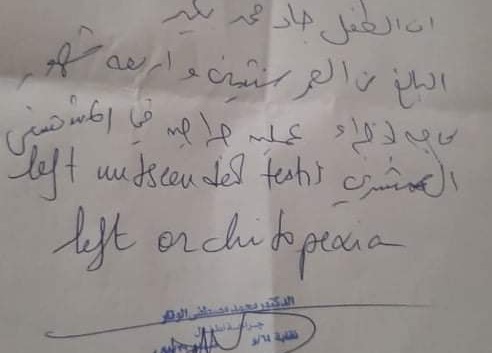 ان الطفل جاد محمد بكير
البالغ من العمر سنتين واربعة شهور
بحاجة لاجراء عملية جراحية في المستشفى
left undscended testis
left orchitopexia
الدكتور محمد مصطفى
جراحة اطفال
نقابة